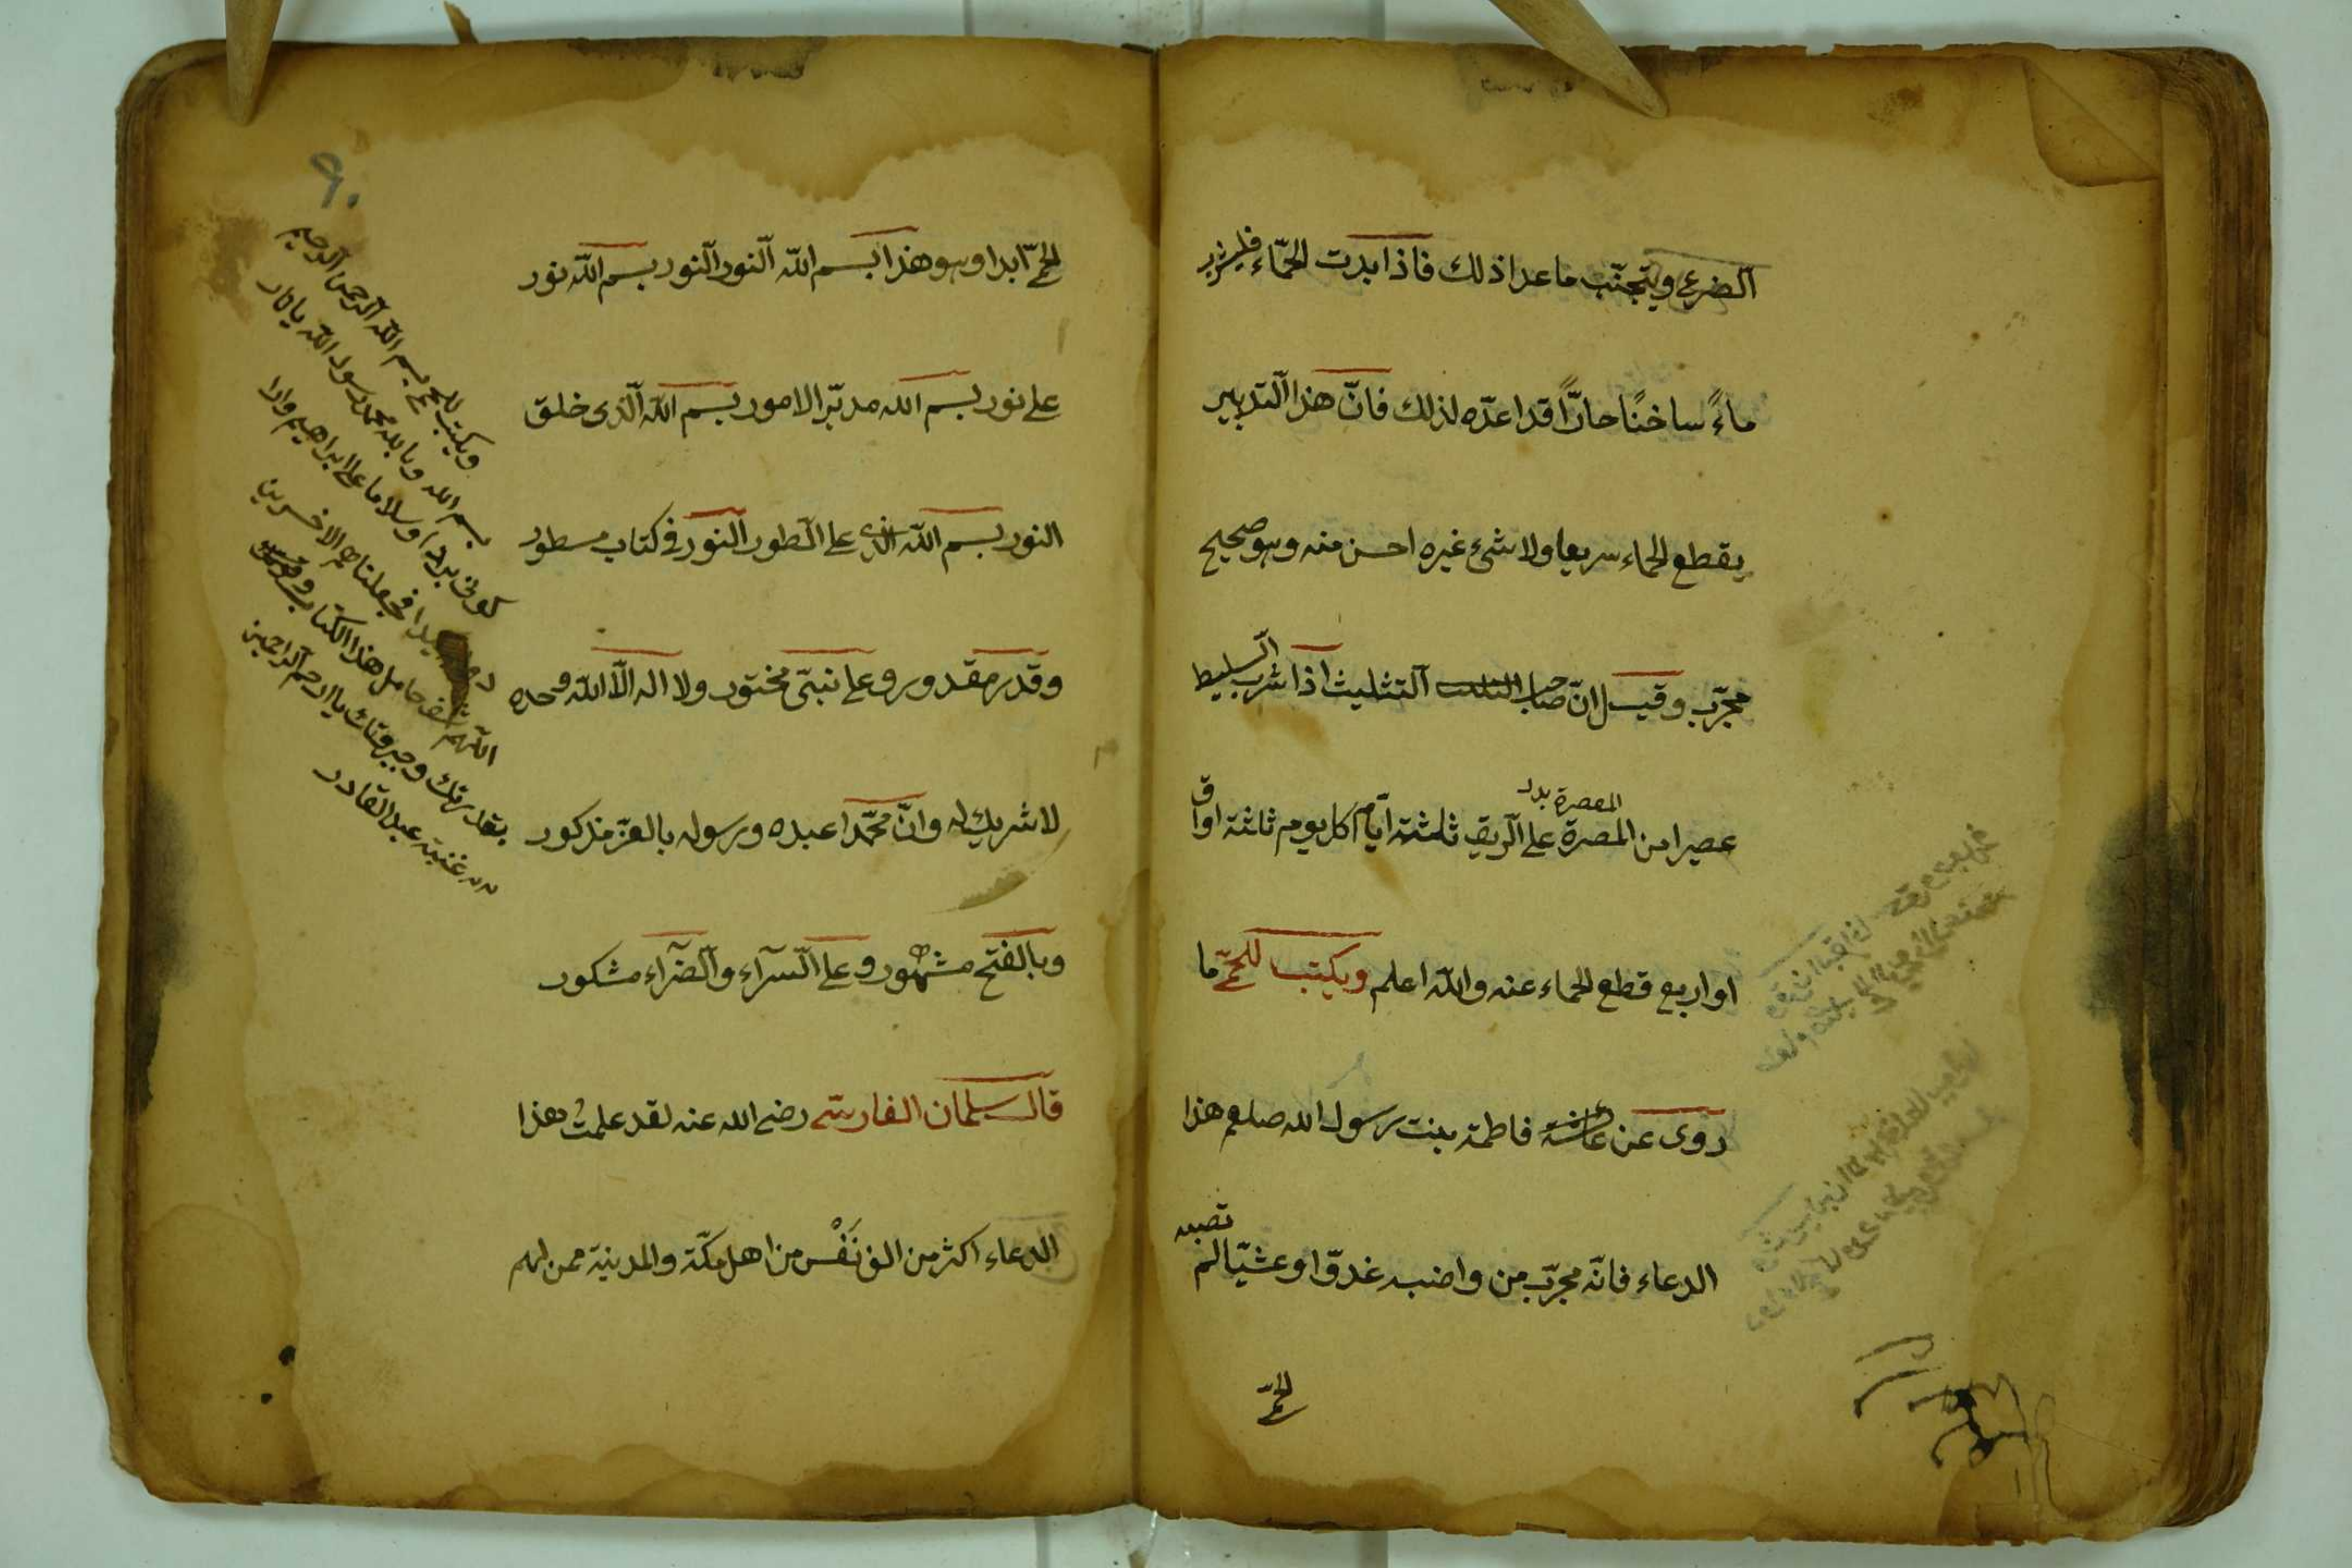 الضرعى ويتجنّب ماعدا ذلك فاذا بدت الحمّاء فليشرب
ماءً ساخنًا حارًّا قد اعدّه لذلك فانّ هذا التدبير
يقطع الحماء سريعا ولا شىء غيره احسن منه وهو صحيح
مجرّب وقيل انّ صاحب التثليث اذا شرب السليط
عصيرا من المصرة على الريق ثلثة ايّام كل يوم ثلثة اواق
المعصرة بدد
او اربع قطع الحماء عنه والله اعلم ويكتب للحمّى ما
روى عن عائشة فاطمة بنت رسول الله صلعم هذا
الدعاء فانّه مجرّب من واضبه غدوّا وعشيّا لم
تصبه
الحمّى
٩٠
الحمّى ابدا وهو هذا بسم الله النور النور بسم الله نور
على نور بسم الله مدبّر الامور بسم الله الّذى خلق
النور بسم الله الذى على الطور النور فى كتاب مسطور
وقدر مقدور وعلى نبىّ مختور ولا اله الّا الله وحده
لا شريك له وانّ محمّدا عبده ورسوله بالعزّ مذكور
وبالفتح مشهور وعلى السرآء والضرآء مشكور
قال سلمان الفارسى رضى الله عنه لقد علمت هذا
الدعاء اكثر من الف نَفْس من اهل مكّة والمدينة ممن لهم
ويكتب للحمى بسم الله الرحمن الرحيم
بسم الله وبالله محمد رسول الله يا نار
كونى بردا وسلاما على ابراهيم وارا
دوا كيدا فجعلناهم الاخسرين
اللهم اشف حامل هذا الكتاب
بقدرتك وجبروتك يا ارحم الراحمين
غنية عبد القادر